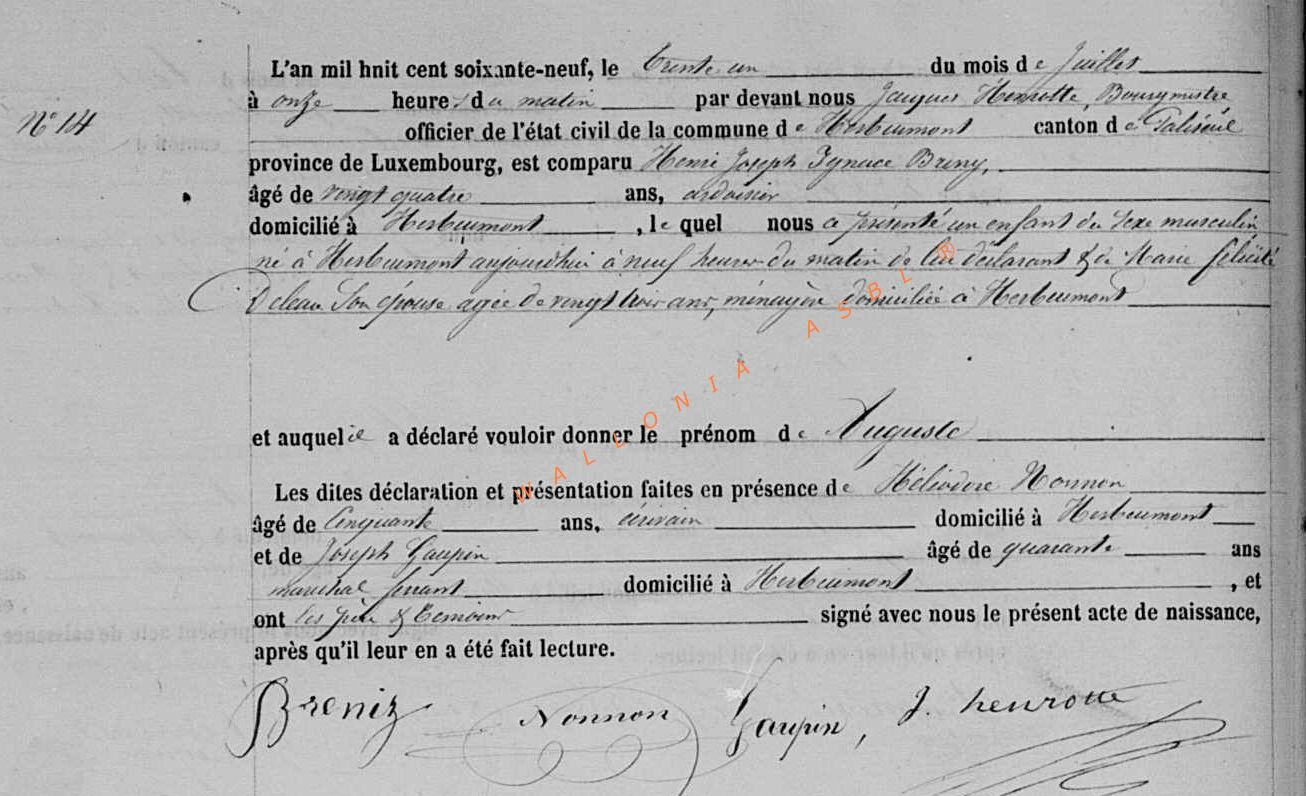 L'an mil huit cent soixante-neuf, le trente un du mois de Juillet
à onze heures du matin par devant nous Jacques Henrotte, Bourgmestre
N° 14
officier de l'état civil de la commune de Herbeumont canton de Paliseul
province de Luxembourg, est comparu Henri Joseph Ignace Breny,
âgé de vingt quatre ans, ardoisier
domicilié à Herbeumont, le quel nous a présenté un enfant du sexe masculin
né à Herbeumont aujourd'hui à neuf heures du matin de lui déclarant & de Marie félicité
son épouse agée de vingt trois ans, ménagère domiciliée à Herbeumont
et auquel il a déclaré vouloir donner le prénom de Auguste
Les dites déclaration et présentation faites en présence de Héliodore Nonnon
âgé de Cinquante ans, écrivain domicilié à Herbeumont
et de Joseph Gaupin âgé de quarante ans
maréchal ferrant domicilié à Herbeumont, et
ont les père & témoins signé avec nous le présent acte de naissance,
après qu'il leur en a été fait lecture.
Breniz Nonnon Gaupin, J. henrotte
WALLONIA ASBL ®